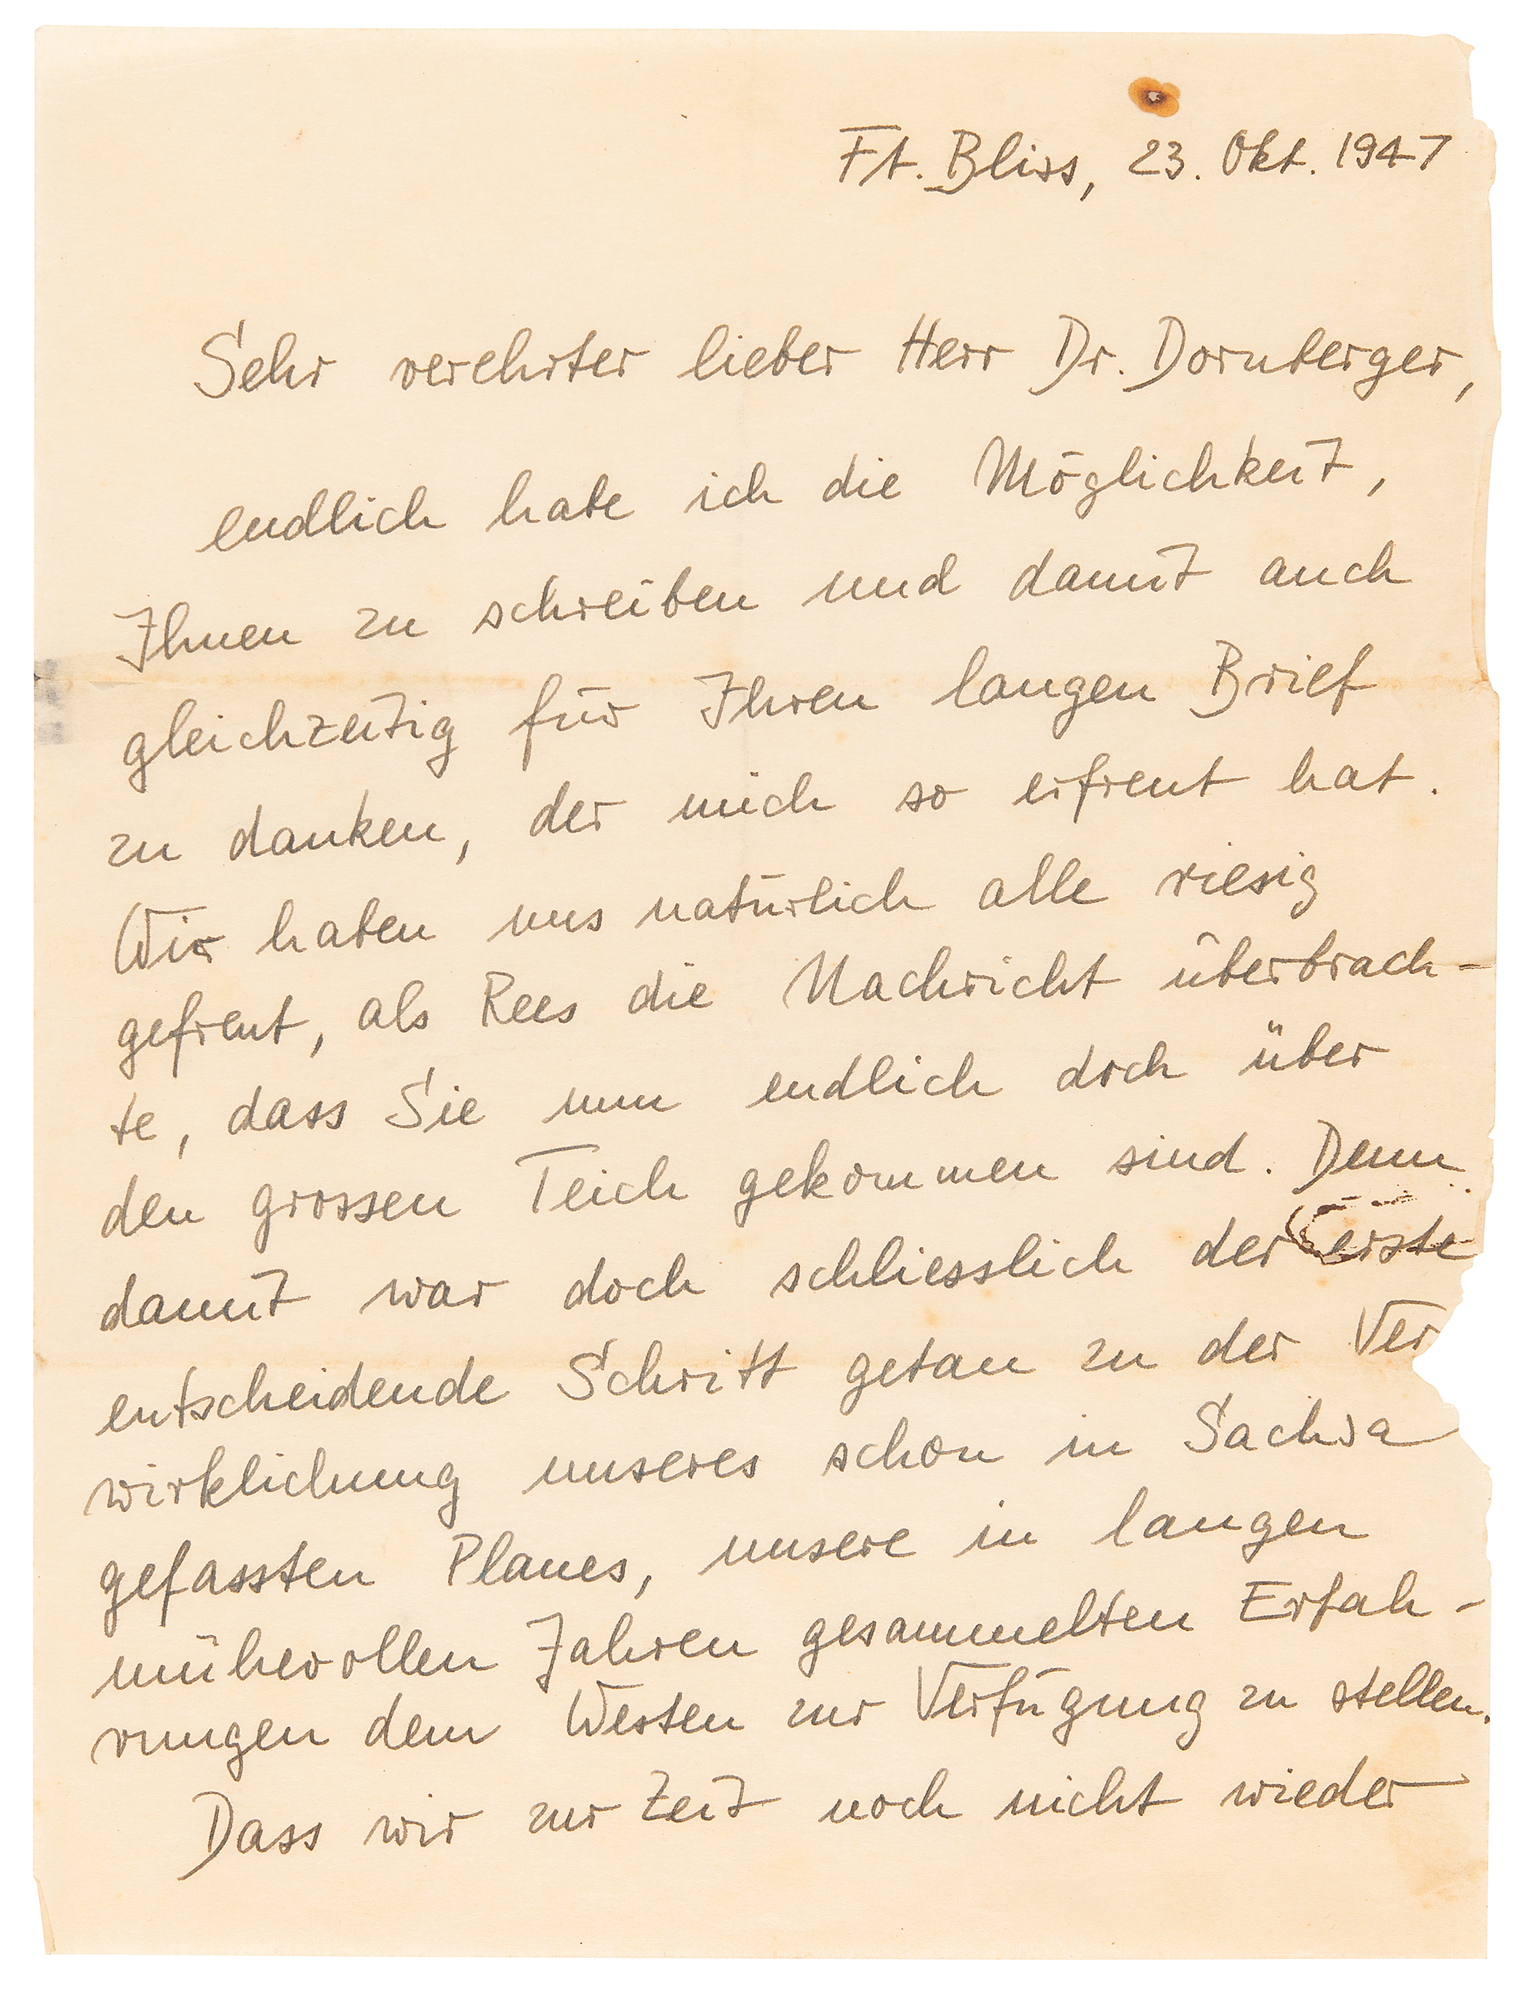 Ft. Bliss, 23. Okt. 1947
Sehr verehrter lieber Herr Dr. Dornberger,
endlich habe ich die Möglichkeit,
Ihnen zu schreiben und damit auch
gleichzeitig für Ihren langen Brief
zu danken, der mich so erfreut hat.
Wir haben uns natürlich alle riesig
gefreut, als Rees die Nachricht überbrach-
te, dass Sie nun endlich doch über
den grossen Teich gekommen sind. Denn
damit war doch schliesslich der erste
entscheidende Schritt getan zu der Ver
wirklichung unseres schon in Sachsa
gefassten Planes, unsere in langen
mühevollen Jahren gesammelten Erfah-
rungen dem Westen zur Verfügung zu stellen.
Dass wir zur Zeit noch nicht wieder